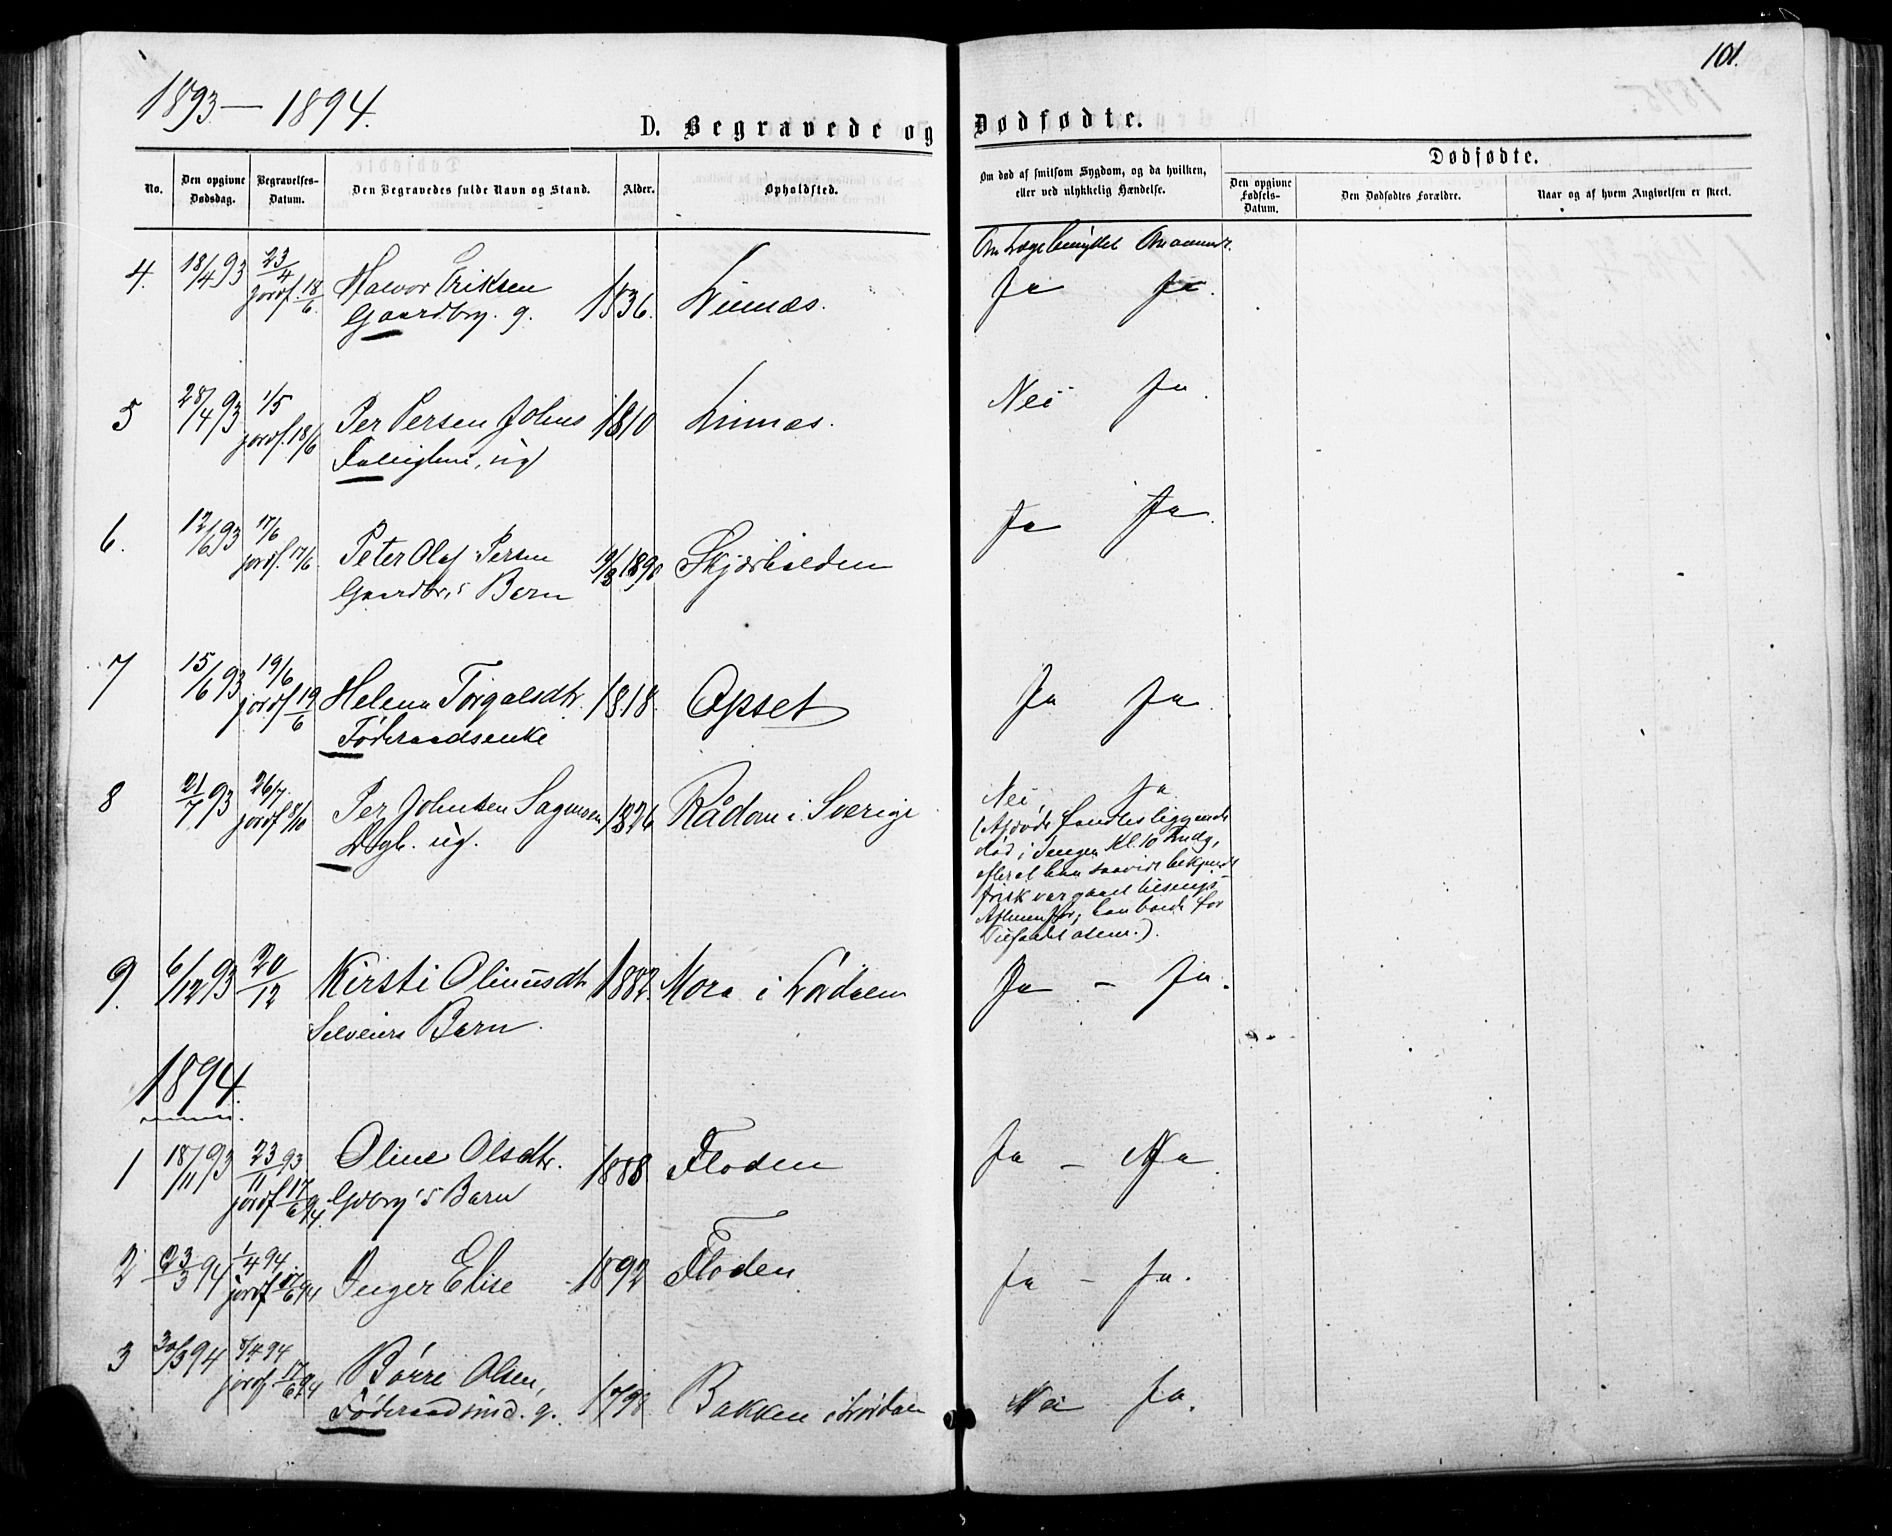 101.
1893 — 1894.
D. Begravede og Dødfødte.
No.
Den opgivne Dødsdag.
Begravelses-Datum.
Den Begravedes fulde Navn og Stand.
Alder.
Opholdsted.
Om død af smitsom Sygdom, og da hvilken, eller ved ulykkelig Hændelse.
Dødfødte.
Den opgivne Fødsels-Datum.
Den Dødfødtes Forældre.
Naar og af hvem Angivelsen er skeet.
4. 18/4 93 23/4 Halvor Eriksen 1836. Linnæs. Ja Ja.
jordf. 18/6. Gaardbrg. g.
5 28/4 93 1/5 Per Persen Johns 1810 Linnæs. Nei Ja.
jordf. 18/6 ug
6. 12/6 93 17/6 Peter Olaf Persen 1890 Ja Ja.
jordf. 17/6 Gaardbr.s Barn
7 15/6 93 19/6 Helena Torgalsdtr. 1818. Opset Ja Ja.
jordf 19/6 Føderaadsenke
8 21/7 93 26/7. Per Johnsen 1826 Rådom i Sverige Nei, Ja
jordf 8/10 ug.
(Afdøde fandtes liggende
død i Sengen Kl. 10
efterat han saavidt bekjendt
frisk var gaaet tilsengs
9. 6/12 93 20/12 Kirsti Olinusdtr 1882. Mora i Lørdalen Ja — Ja.
Selveiers Barn.
1894.
1 18/11 93 23/11 93 Oline Olsdtr. 1888 Floden Ja — Ja.
jordf 17/6 94. Gdbrg's Barn
2 23/3 94 1/4 94. Inger Elise 1892 Floden Ja — Ja.
jordf 17/6 94
3 30/3 94 8/4 94 Børre Olsen, 1798. Bakken i Lørdalen Nei Ja.
jordf 17/6 94 Føderaadsmd. g.